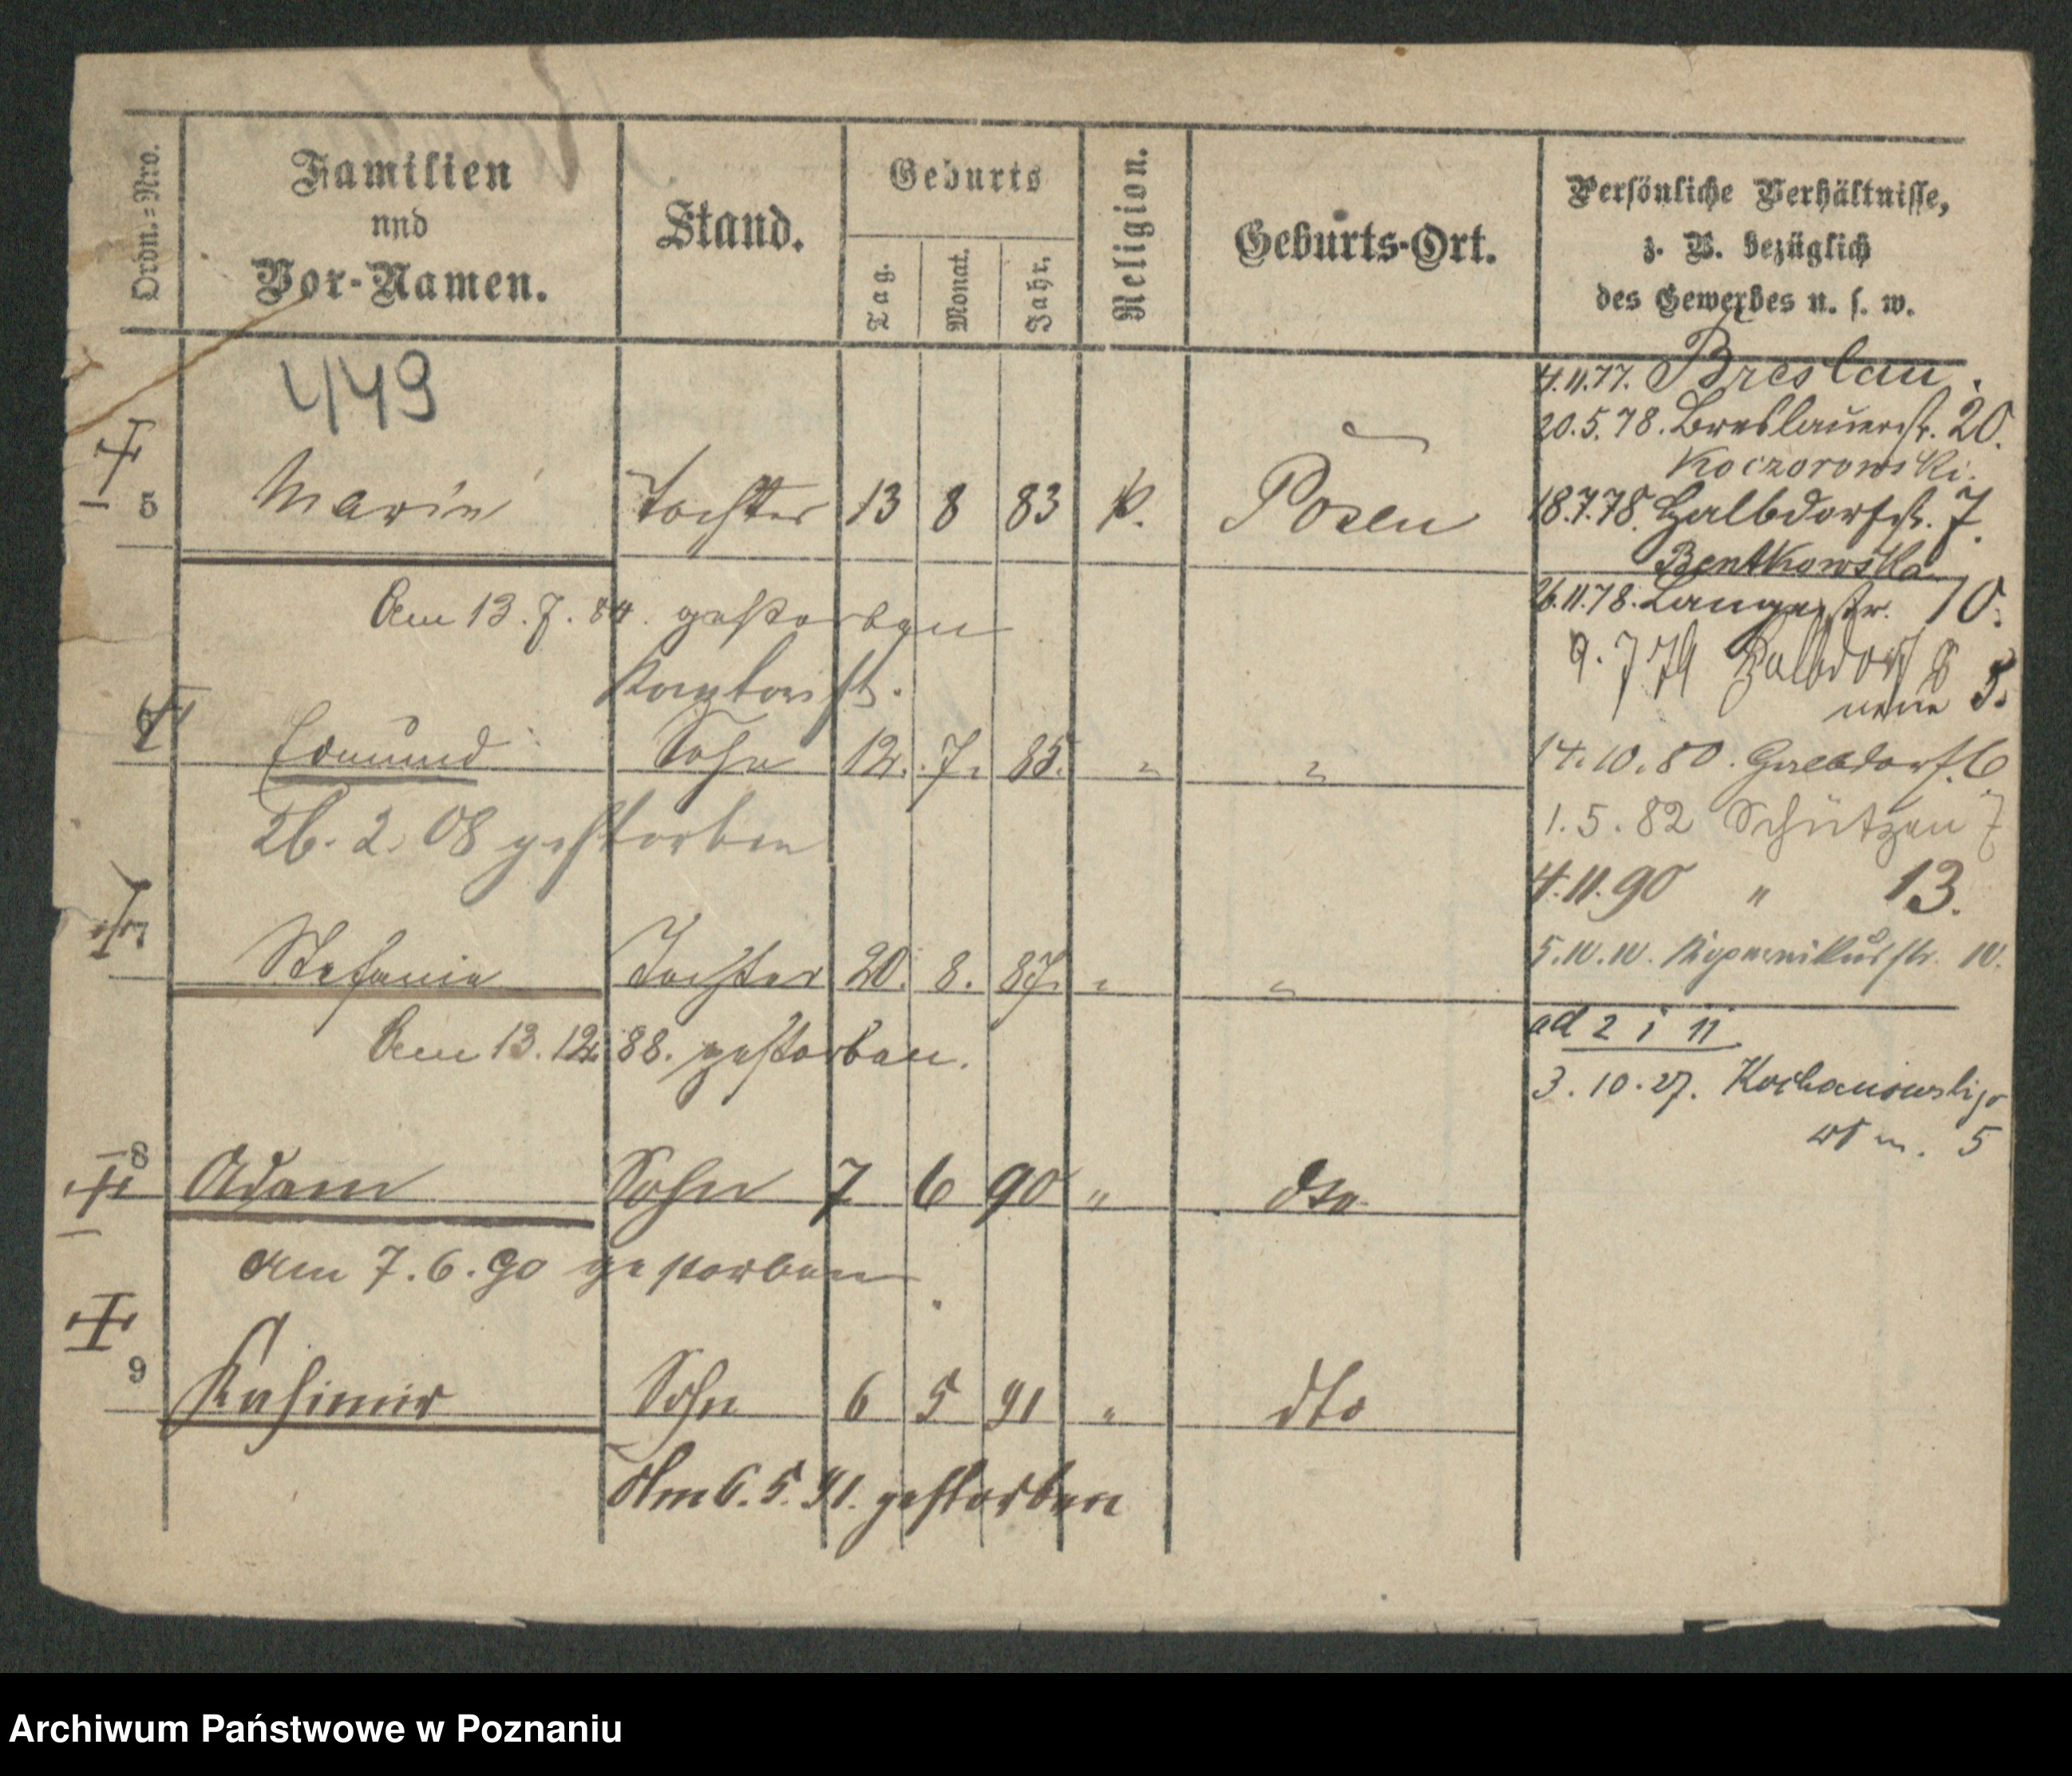 Ordn.=Nro.
Familien
und
Vor-Namen.
Stand.
Geburts
Tag.
Monat.
Jahr.
Religion.
Geburts-Ort.
Persönliche Verhältnisse,
z. B. bezüglich
des Gewerbes u. s. w.
449
4.11.77. Breslau.
20.5.78. Breslauerstr. 20.
Koczorowski.
5 Marie Tochter 13 8 83 k. Posen
18.7.78. Halbdorfstr. 7.
Bentkowska
26.11.78. Langestr. 10.
Am 13.7.84. gestorben
9.7.79 Halbdorf 8
neue 5.
Kontorist.
6 Edmund Sohn 12. 7. 85. " "
14.10.80. Halbdorf. 6
1.5.82 Schützen 7
26.2.08 gestorben
4.11.90 " 13.
7 Stefanie Tochter 20. 8. 87. " "
5.10.10. Kopernikusstr. 10.
Am 13.12.88. gestorben.
ad 2 i 11.
3.10.27. Kochanowskiego
5
8 Adam Sohn 7 6 90 " dto
am 7.6.90 gestorben
9 Kasimir Sohn 6 5 91 " dto
Am 6.5.91. gestorben
Archiwum Państwowe w Poznaniu